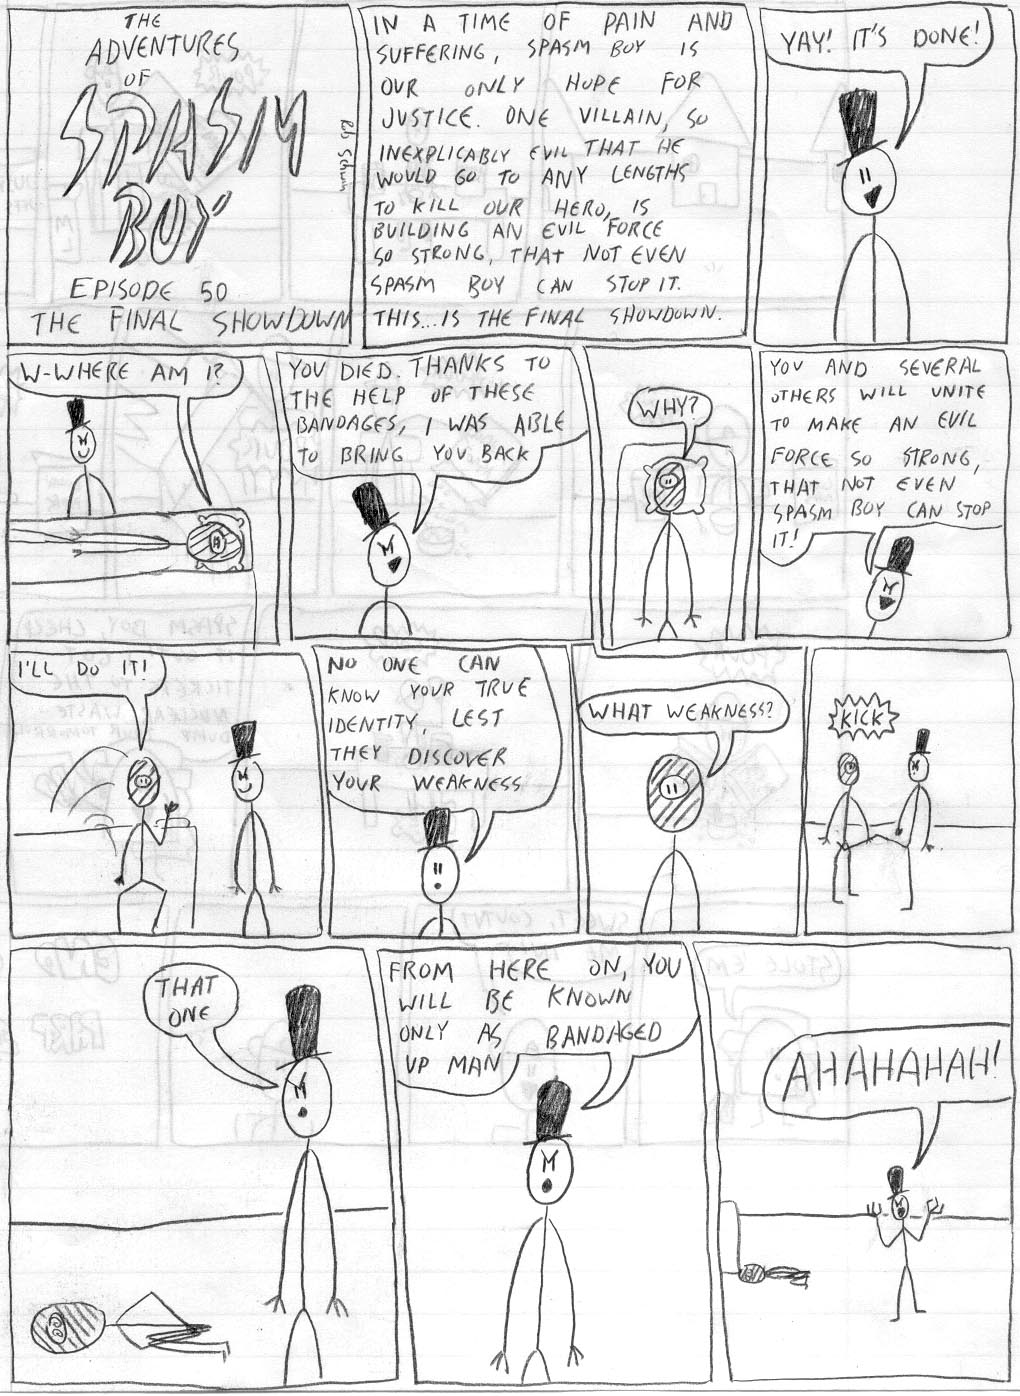 THE
ADVENTURES
OF
SPASM
BOY
EPISODE 50
THE FINAL SHOWDOWN
IN A TIME OF PAIN AND
SUFFERING, SPASM BOY IS
OUR ONLY HOPE FOR
JUSTICE. ONE VILLAIN, SO
INEXPLICABLY EVIL THAT HE
WOULD GO TO ANY LENGTHS
TO KILL OUR HERO, IS
BUILDING AN EVIL FORCE
SO STRONG, THAT NOT EVEN
SPASM BOY CAN STOP IT.
THIS...IS THE FINAL SHOWDOWN.
YAY! IT'S DONE!
W-WHERE AM I?
YOU DIED. THANKS TO
THE HELP OF THESE
BANDAGES, I WAS ABLE
TO BRING YOU BACK
WHY?
YOU AND SEVERAL
OTHERS WILL UNITE
TO MAKE AN EVIL
FORCE SO STRONG,
THAT NOT EVEN
SPASM BOY CAN STOP
IT!
I'LL DO IT!
NO ONE CAN
KNOW YOUR TRUE
IDENTITY, LEST
THEY DISCOVER
YOUR WEAKNESS
WHAT WEAKNESS?
KICK
THAT
ONE
FROM HERE ON, YOU
WILL BE KNOWN
ONLY AS BANDAGED
UP MAN
AHAHAHAH!